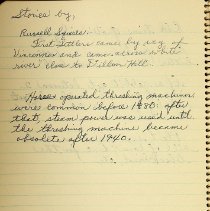 Stones by,
Russell Squires.
First settlers came by way of
Vincennes and came across White
river close to Dillon Hill.
Horse operated threshing machines
were common before 1880: after
that, steam power was used until
the threshing machine became
obsolete after 1940.